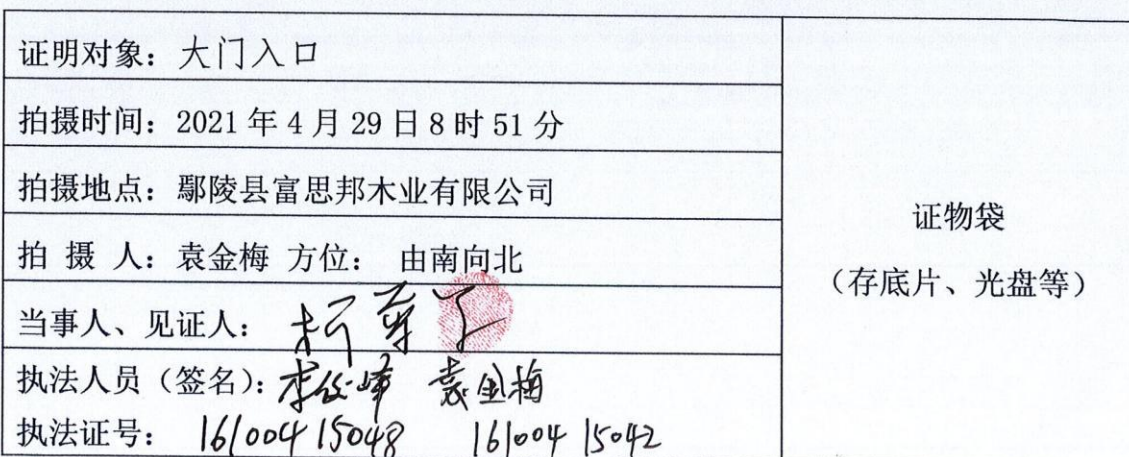 证明对象：大门入口
拍摄时间：2021 年 4 月 29 日 8 时 51 分
拍摄地点：鄢陵县富思邦木业有限公司
拍 摄 人：袁金梅 方位： 由南向北
当事人、见证人：
执法人员（签名）： 袁金梅
执法证号： 16100415048 16100415042
证物袋
（存底片、光盘等）